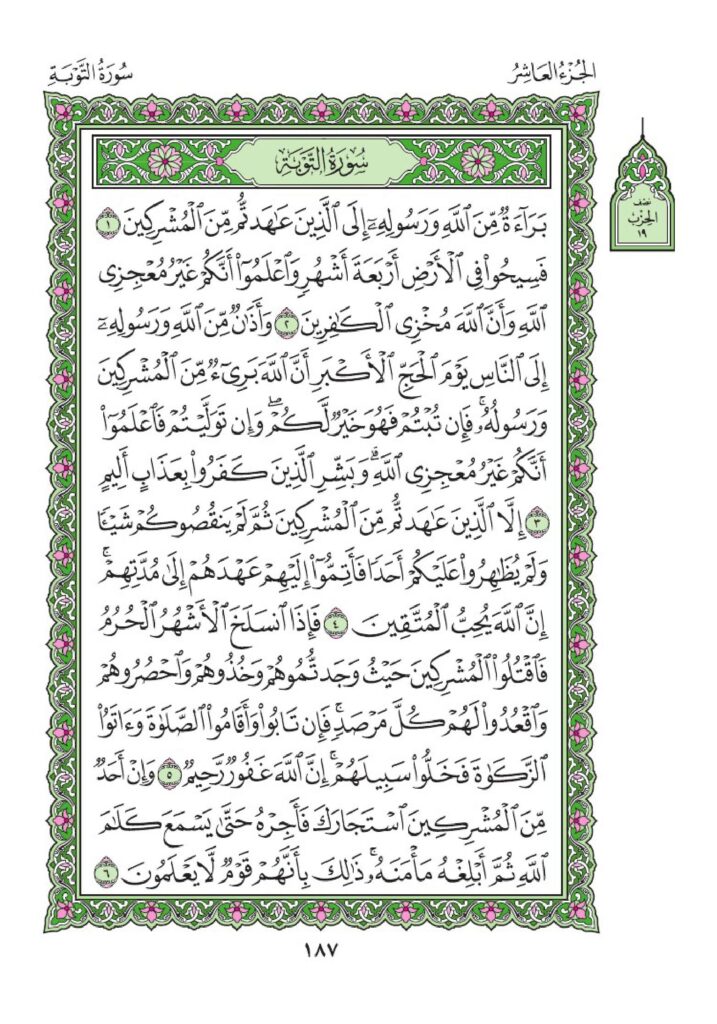 الجُزْءُ العَاشِرُ
سُورَةُ التَّوْبَةِ
نِصْف
الحِزْب
١٩
سُورَةُ التَّوْبَةِ
بَرَآءَةٌ مِّنَ ٱللَّهِ وَرَسُولِهِۦٓ إِلَى ٱلَّذِينَ عَٰهَدتُّم مِّنَ ٱلْمُشْرِكِينَ ١
فَسِيحُوا۟ فِى ٱلْأَرْضِ أَرْبَعَةَ أَشْهُرٍ وَٱعْلَمُوٓا۟ أَنَّكُمْ غَيْرُ مُعْجِزِى
ٱللَّهِ وَأَنَّ ٱللَّهَ مُخْزِى ٱلْكَٰفِرِينَ ٢ وَأَذَٰنٌ مِّنَ ٱللَّهِ وَرَسُولِهِۦٓ
إِلَى ٱلنَّاسِ يَوْمَ ٱلْحَجِّ ٱلْأَكْبَرِ أَنَّ ٱللَّهَ بَرِىٓءٌ مِّنَ ٱلْمُشْرِكِينَ
وَرَسُولُهُۥ ۚ فَإِن تُبْتُمْ فَهُوَ خَيْرٌ لَّكُمْ ۖ وَإِن تَوَلَّيْتُمْ فَٱعْلَمُوٓا۟
أَنَّكُمْ غَيْرُ مُعْجِزِى ٱللَّهِ ۗ وَبَشِّرِ ٱلَّذِينَ كَفَرُوا۟ بِعَذَابٍ أَلِيمٍ
٣ إِلَّا ٱلَّذِينَ عَٰهَدتُّم مِّنَ ٱلْمُشْرِكِينَ ثُمَّ لَمْ يَنقُصُوكُمْ شَيْـًٔا
وَلَمْ يُظَٰهِرُوا۟ عَلَيْكُمْ أَحَدًا فَأَتِمُّوٓا۟ إِلَيْهِمْ عَهْدَهُمْ إِلَىٰ مُدَّتِهِمْ ۚ
إِنَّ ٱللَّهَ يُحِبُّ ٱلْمُتَّقِينَ ٤ فَإِذَا ٱنسَلَخَ ٱلْأَشْهُرُ ٱلْحُرُمُ
فَٱقْتُلُوا۟ ٱلْمُشْرِكِينَ حَيْثُ وَجَدتُّمُوهُمْ وَخُذُوهُمْ وَٱحْصُرُوهُمْ
وَٱقْعُدُوا۟ لَهُمْ كُلَّ مَرْصَدٍ ۚ فَإِن تَابُوا۟ وَأَقَامُوا۟ ٱلصَّلَوٰةَ وَءَاتَوُا۟
ٱلزَّكَوٰةَ فَخَلُّوا۟ سَبِيلَهُمْ ۚ إِنَّ ٱللَّهَ غَفُورٌ رَّحِيمٌ ٥ وَإِنْ أَحَدٌ
مِّنَ ٱلْمُشْرِكِينَ ٱسْتَجَارَكَ فَأَجِرْهُ حَتَّىٰ يَسْمَعَ كَلَٰمَ
ٱللَّهِ ثُمَّ أَبْلِغْهُ مَأْمَنَهُۥ ۚ ذَٰلِكَ بِأَنَّهُمْ قَوْمٌ لَّا يَعْلَمُونَ ٦
١٨٧